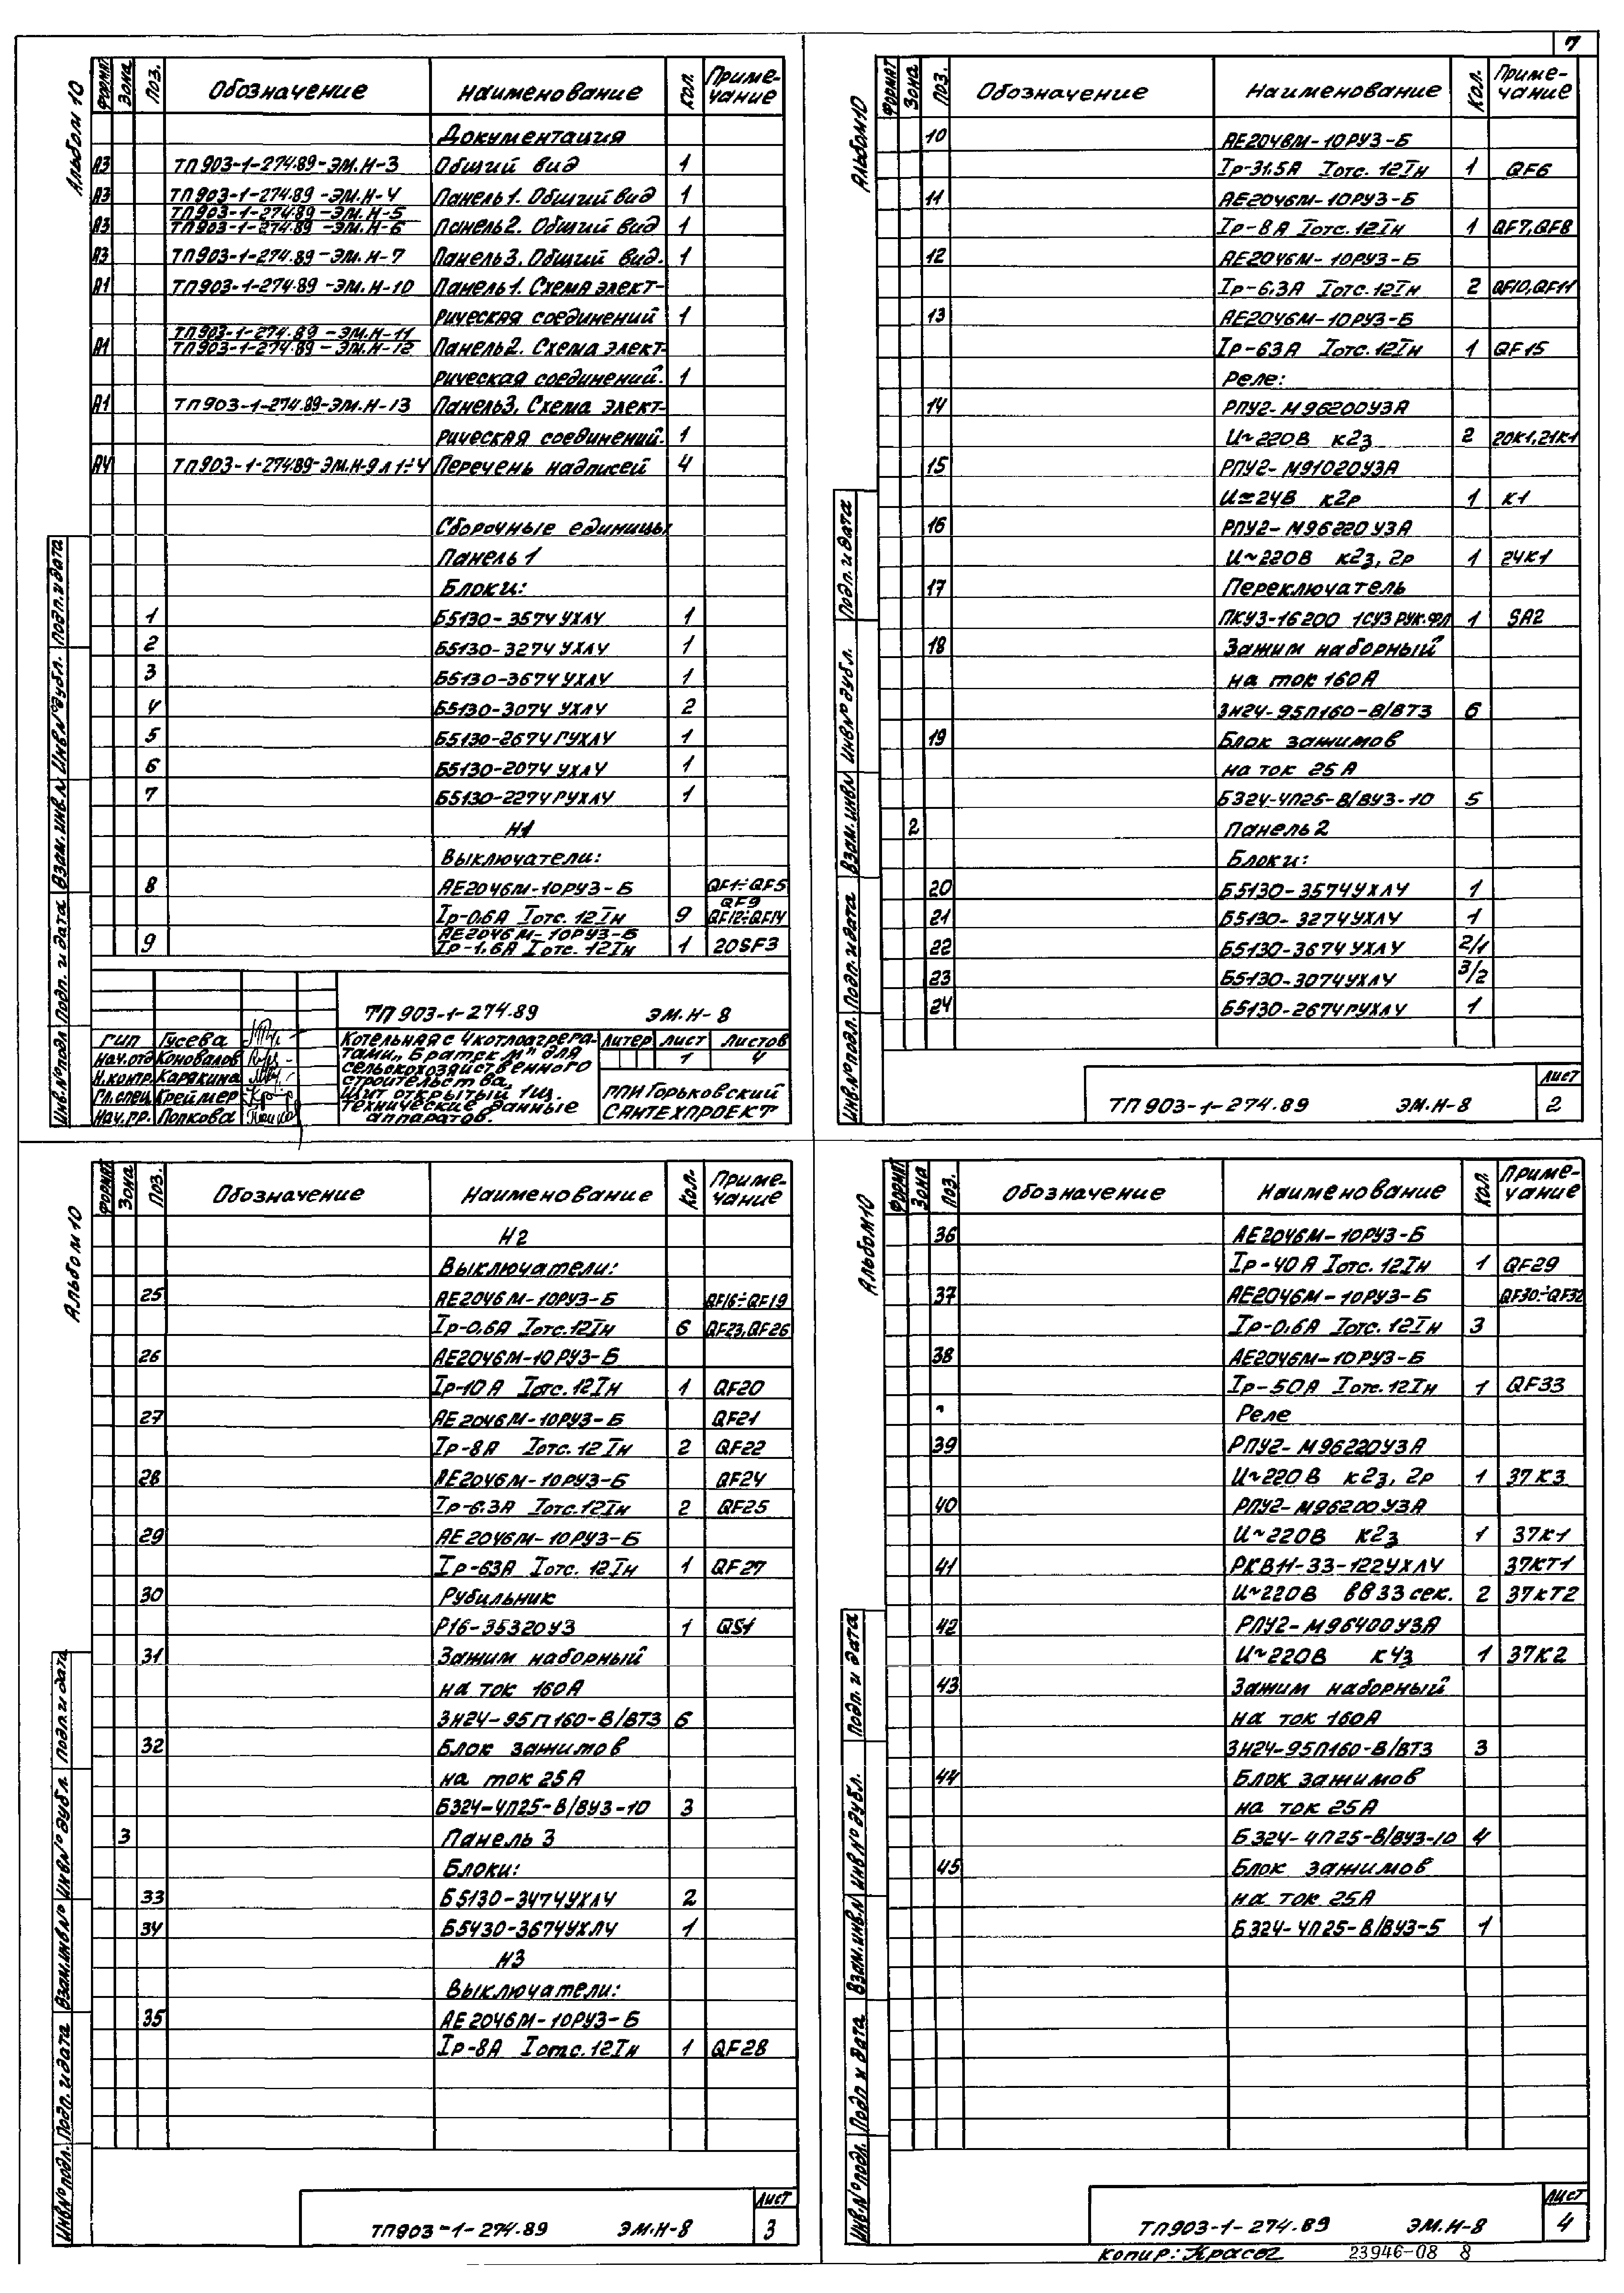 7
Альбом 10
Формат Зона Поз. Обозначение Наименование Кол. Примечание
Документация
А3 ТП903-1-274.89-ЭМ.Н-3 Общий вид 1
А3 ТП903-1-274.89-ЭМ.Н-4 Панель 1. Общий вид 1
ТП903-1-274.89-ЭМ.Н-5
А3 ТП903-1-274.89-ЭМ.Н-6 Панель 2. Общий вид 1
А3 ТП903-1-274.89-ЭМ.Н-7 Панель 3. Общий вид. 1
А1 ТП903-1-274.89-ЭМ.Н-10 Панель 1. Схема элект-
рическая соединений 1
ТП903-1-274.89-ЭМ.Н-11
А1 ТП903-1-274.89-ЭМ.Н-12 Панель 2. Схема элект-
рическая соединений. 1
А1 ТП903-1-274.89-ЭМ.Н-13 Панель 3. Схема элект-
рическая соединений. 1
А4 ТП903-1-274.89-ЭМ.Н-9 л 1÷4 Перечень надписей 4
Сборочные единицы
Панель 1
Блоки:
1 Б5130-3574 УХЛ4 1
2 Б5130-3274 УХЛ4 1
3 Б5130-3674 УХЛ4 1
4 Б5130-3074 УХЛ4 2
5 Б5130-2674 ГУХЛ4 1
6 Б5130-2074 УХЛ4 1
7 Б5130-2274 РУХЛ4 1
Н1
Выключатели:
8 АЕ2046М-10РУЗ-Б QF1÷QF5
QF9
Iр-0,6А Iотс. 12Iн 9 QF12÷QF14
АЕ2046М-10РУЗ-Б
9 Iр-1.6А Iотс. 12Iн 1 20SF3
ТП 903-1-274.89 ЭМ.Н-8
ГИП Гусева
Нач.отд Коновалов
Н.контр. Карякина
Гл.спец Креймер
Нач.гр. Попкова
Котельная с 4 котлоагрега-
тами „Братск М" для
сельскохозяйственного
строительства.
Щит открытый 1щ.
Технические данные
аппаратов.
Литер Лист Листов
1 4
ГПИ Горьковский
САНТЕХПРОЕКТ
Инв.№ подл Подп. и дата Взам.инв.№ Инв№ дубл. Подп.и дата
Альбом 10
Формат Зона Поз. Обозначение Наименование Кол. Примечание
10 АЕ2046М-10РУЗ-Б
Iр-31.5А Iотс. 12Iн 1 QF6
11 АЕ2046М-10РУЗ-Б
Iр-8А Iотс. 12Iн 1 QF7,QF8
12 АЕ2046М-10РУЗ-Б
Iр-6,3А Iотс. 12Iн 2 QF10,QF11
13 АЕ2046М-10РУЗ-Б
Iр-63А Iотс. 12Iн 1 QF15
Реле:
14 РПУ2-М96200УЗА
U~220В к2з 2 20К1,21К1
15 РПУ2-М91020УЗА
U=24В к2р 1 К1
16 РПУ2-М96220 УЗА
U~220В к2з, 2р 1 24К1
17 Переключатель
ПКУЗ-16200 1СУЗ РУК.ФЛ 1 SA2
18 Зажим наборный
на ток 160А
ЗН24-95П160-В/ВТЗ 6
19 Блок зажимов
на ток 25А
БЗ24-4П25-В/ВУЗ-10 5
2 Панель 2
Блоки:
20 Б5130-3574УХЛ4 1
21 Б5130-3274УХЛ4 1
22 Б5130-3674 УХЛ4 2/1
23 Б5130-3074УХЛ4 3/2
24 Б5130-2674РУХЛ4 1
ТП 903-1-274.89 ЭМ.Н-8 Лист 2
Инв.№ подл. Подп. и дата Взам.инв№ Инв№ дубл. Подп. и дата
Альбом 10
Формат Зона Поз. Обозначение Наименование Кол. Примечание
Н2
Выключатели:
25 АЕ2046М-10РУЗ-Б QF16÷QF19
Iр-0,6А Iотс. 12Iн 6 QF23,QF26
26 АЕ2046М-10РУЗ-Б
Iр-10А Iотс. 12Iн 1 QF20
27 АЕ2046М-10РУЗ-Б QF21
Iр-8А Iотс. 12Iн 2 QF22
28 АЕ2046М-10РУЗ-Б QF24
Iр-6.3А Iотс. 12Iн 2 QF25
29 АЕ2046М-10РУЗ-Б
Iр-63А Iотс. 12Iн 1 QF27
30 Рубильник
Р16-35320УЗ 1 QS1
31 Зажим наборный
на ток 160А
ЗН24-95П160-В/ВТЗ 6
32 Блок зажимов
на ток 25А
БЗ24-4П25-В/ВУЗ-10 3
3 Панель 3
Блоки:
33 Б5130-3474УХЛ4 2
34 Б5430-3674УХЛ4 1
Н3
Выключатели:
35 АЕ2046М-10РУЗ-Б
Iр-8А Iотс. 12Iн 1 QF28
ТП903-1-274.89 ЭМ.Н-8 Лист 3
Инв№ подл. Подп. и дата Взам.инв№ Инв№ дубл Подп. и дата
Альбом 10
Формат Зона Поз. Обозначение Наименование Кол Примечание
36 АЕ2046М-10РУЗ-Б
Iр-40А Iотс. 12Iн 1 QF29
37 АЕ2046М-10РУЗ-Б QF30÷QF32
Iр-0,6А Iотс. 12Iн 3
38 АЕ2046М-10РУЗ-Б
Iр-50А Iотс. 12Iн 1 QF33
Реле
39 РПУ2-М96220УЗА
U~220В к2з, 2р 1 37К3
40 РПУ2-М96200УЗА
U~220В к2з 1 37К1
41 РКВ11-33-122УХЛ4 37КТ1
U~220В вв 33 сек. 2 37КТ2
42 РПУ2-М96400УЗА
U~220В к4з 1 37К2
43 Зажим наборный
на ток 160А
ЗН24-95П160-В/ВТЗ 3
44 Блок зажимов
на ток 25А
БЗ24-4П25-В/ВУЗ-10 4
45 Блок зажимов
на ток 25А
БЗ24-4П25-В/ВУЗ-5 1
ТП903-1-274.89 ЭМ.Н-8 Лист 4
Инв.№ подл. Подп и дата Взам.инв.№ Инв№ дубл. Подп. и дата
Копир: 23946-08 8